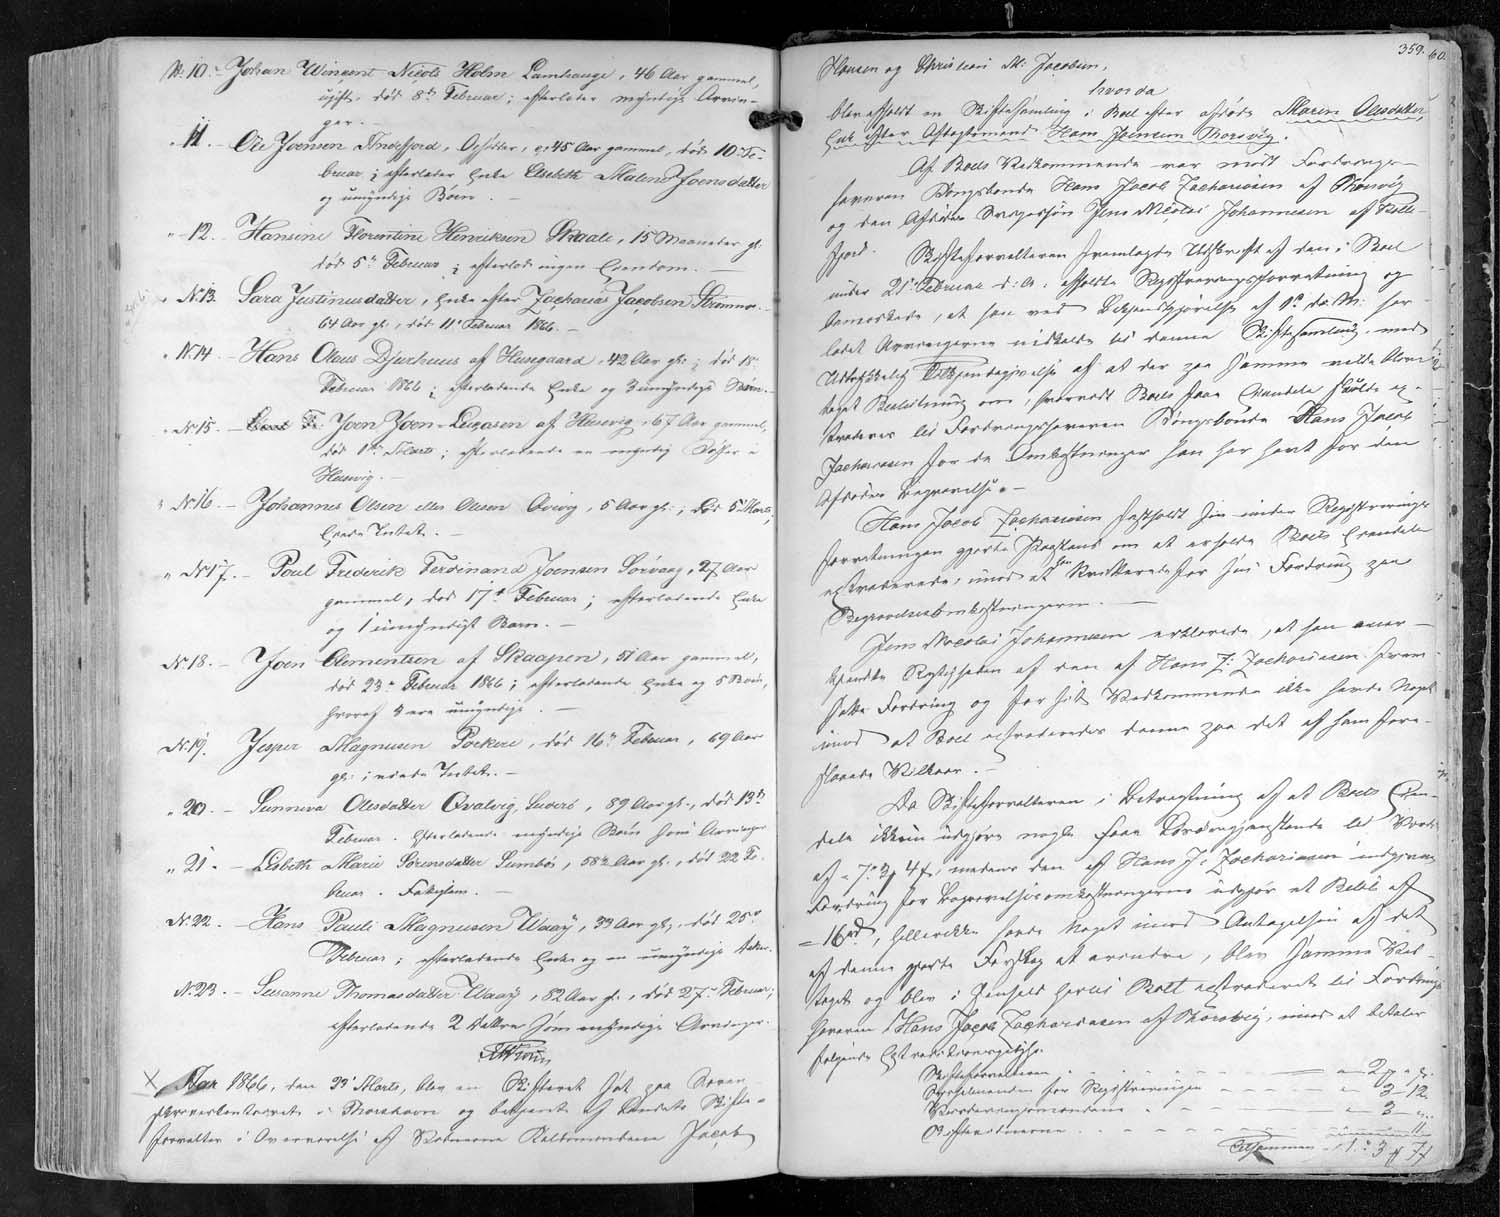 No 10. Johan Wingent Nicolai Holm Lamhauge, 46 Aar gammel,
ugift, død 8de Februar; efterlader myndige Arvin-
ger.
" 11. Ole Joensen Andefjord, Opsidder, 45 Aar gammel, død 10 Fe-
bruar; efterlader Enke Elsebeth Malene Joensdatter
og umyndige Børn.
" 12. Hansine Florentine Henriksen Skaale, 15 Maaneder gl.
død 5te Februar; efterlod ingen Eiendom.
" No 13. Sara Justinusdatter, Enke efter Zacharias Jacobsen Strømnæs
64 Aar gl., død 11te Februar 1866.
" No 14. Hans Olaus Djurhuus af Husegaard, 42 Aar gl.; død 15
Februar 1866; efterladende Enke og 3 umyndige Børn.
" No 15. Joen Joen-Lucasen af Husevig, 67 Aar gammel,
død 1ste Marts; efterladende en myndig Datter i
Husevig.
" No 16. Johannes Olsen eller Olesen Qvivig, 5 Aar gl.; død 5 Marts,
Eiede Intet.
" No 17. Poul Frederik Ferdinand Joensen Sørvaag, 27 Aar
gammel, død 17de Februar; efterladende Enke
og 1 umyndigt Barn.
No 18. Joen Clementsen af Skaapen, 51 Aar gammel,
død 23de Februar 1866; efterladende Enke og 5 Børn,
hvoraf 4 ere umyndige.
No 19. Jesper Magnusen Porkere, død 16de Februar, 69 Aar
gl.; eiede Intet.
" 20. Sunneva Olesdatter Qvalvig, Suderø, 89 Aar gl., død 13de
Februar. Efterladende myndige Børn som Arvinger
" 21. Lisbeth Marie Sørensdatter Sumbø, 58 Aar gl., død 22 Fe-
bruar. Fattiglem.
No 22. Hans Pauli Magnusen Waaÿ, 33 Aar gl., død 25de
Februar; efterladende Enke og en umyndige Datter.
No 23. Susanne Thomasdatter Waaÿ, 82 Aar gl., død 27de Februar;
efterladende 2 Døttre som myndige Arvinger.
Aar 1866, den 23 Marts, blev en Skifteret sat paa Soren-
skriverkontoret i Thorshavn og betjent af Landets Skifte-
forvalter i Overværelse af Vidnerne Retsmændene Jacob
359.
60.
Hansen og Christian M. Jacobsen,
hvorda
blev afholdt en Skiftesamling i Boet efter afdøde Maren Olesdatter,
Enke efter Aftægtsmand Hans Joensen Thorsvig.
Af Boets Vedkommende var mødt Fordrings-
haveren Kongsbonde Hans Jacob Zachariasen af Thorsvig
og den Afdødes Svigersøn Jens Nicolai Johannesen af Kolle-
fjord. Skifteforvalteren fremlagde Udskrift af den i Boet
under 21de Februar d: A. afholdte Registreringsforretning og
bemærkede, at han ved Bekjendtgjørelse af 1ste ds. M: har
ladet Arvingerne indkalde til denne Skiftesamling med
Udtrykkelig Tilkjendegivelse af at der paa samme vilde blive
taget Beslutning om, hvorvidt Boets faa Eiendele skulde ex-
traderes til Fordringshaveren Kongsbonde Hans Jacob
Zachariasen for de Omkostninger han har havt for den
Afdødes Begravelse.
Hans Jacob Zachariasen fastholdt sin under Registrerings-
forretningen gjorte Paastand om at erholde Boets Eiendele
extraderede, imod at han Kvitterede for sin Fordring paa
Begravelsesomkostningerne.
Jens Nicolai Johannesen erklærede, at han aner-
kjendte Rigtigheden af den af Hans J: Zachariasen frem-
satte Fordring og for sit Vedkommende ikke havde Noget
imod at Boet extraderedes denne paa det af ham fore-
slaaede Vilkaar.
Da Skifteforvalteren i Betragtning af at Boets Eien-
dele ikkun udgjøre nogle faa Løsøregjenstande til Værdi
af 7 Rd 3 Mk 4 s, medens den af Hans J. Zachariasen indgivne
Fordring for Begravelsesomkostningerne udgjør et Beløb af
16 Rd, hellerikke havde Noget imod Antagelsen af det
af denne gjorte Forslag at erindre, blev samme Ved-
taget og blev i Henhold hertil Boet extraderet til Fordrings-
haveren Hans Jacob Zachariasen af Thorsvig, imod at betaler
følgende
Skifteforvalteren " 2 " "
Sysselmanden for Registreringen " 3 12.
Vurderingsmændene " 3 "
Skiftevidnerne
Tilsammen 1 : 3